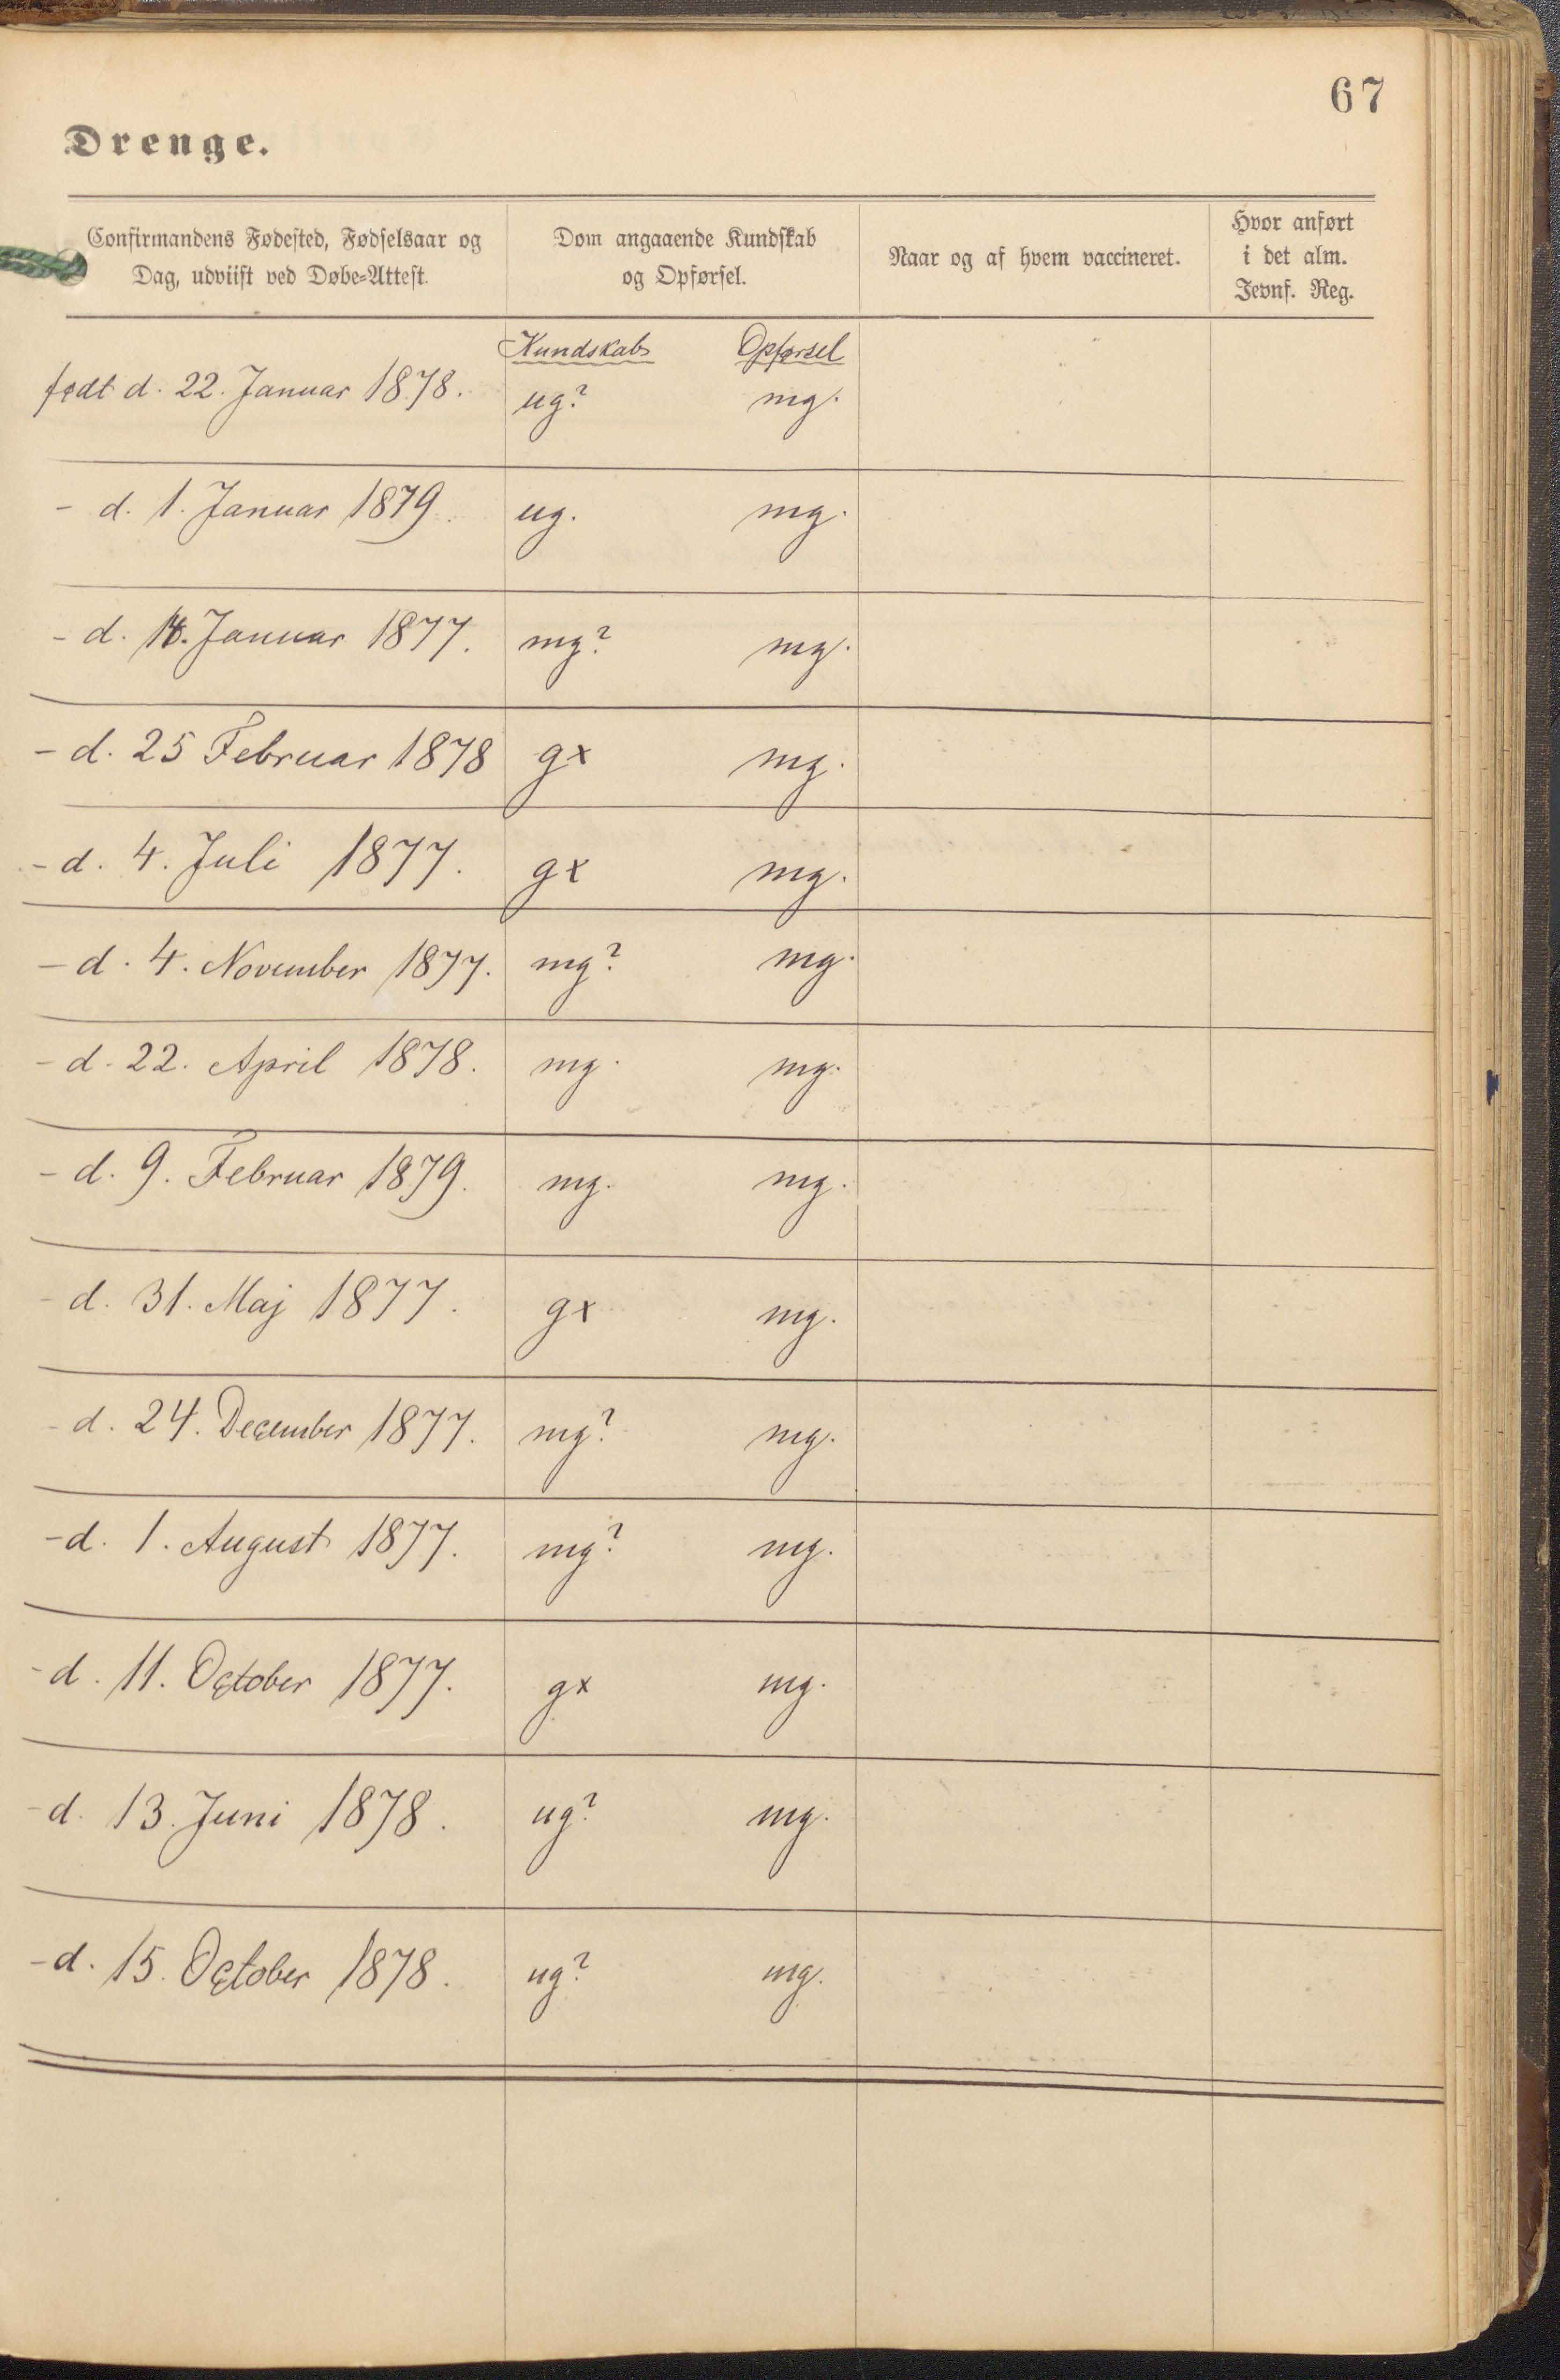 67
Drenge.
Confirmandens Fødested, Fødselsaar og Dag, udviist ved Døbe=Attest.
Dom angaaende Kundskab og Opførsel.
Naar og af hvem vaccineret.
Hvor anført i det alm. Jevnf. Reg.
Kundskab Opførsel
født d. 22. Januar 1878. ug? mg.
- d. 1. Januar 1879. ug. mg.
- d. Januar 1877. mg? mg.
- d. 25 Februar 1878 gx mg.
- d. 4. Juli 1877. gx mg.
- d. 4. November 1877. mg? mg.
- d. 22. April 1878. mg. mg.
- d. 9. Februar 1879. mg. mg.
- d. 31. Maj 1877. gx mg.
- d. 24. December 1877. mg? mg.
- d. 1. August 1877. mg? mg.
- d. 11. October 1877. gx mg.
- d. 13. Juni 1878. ug? mg.
- d. 15. October 1878. ug? mg.